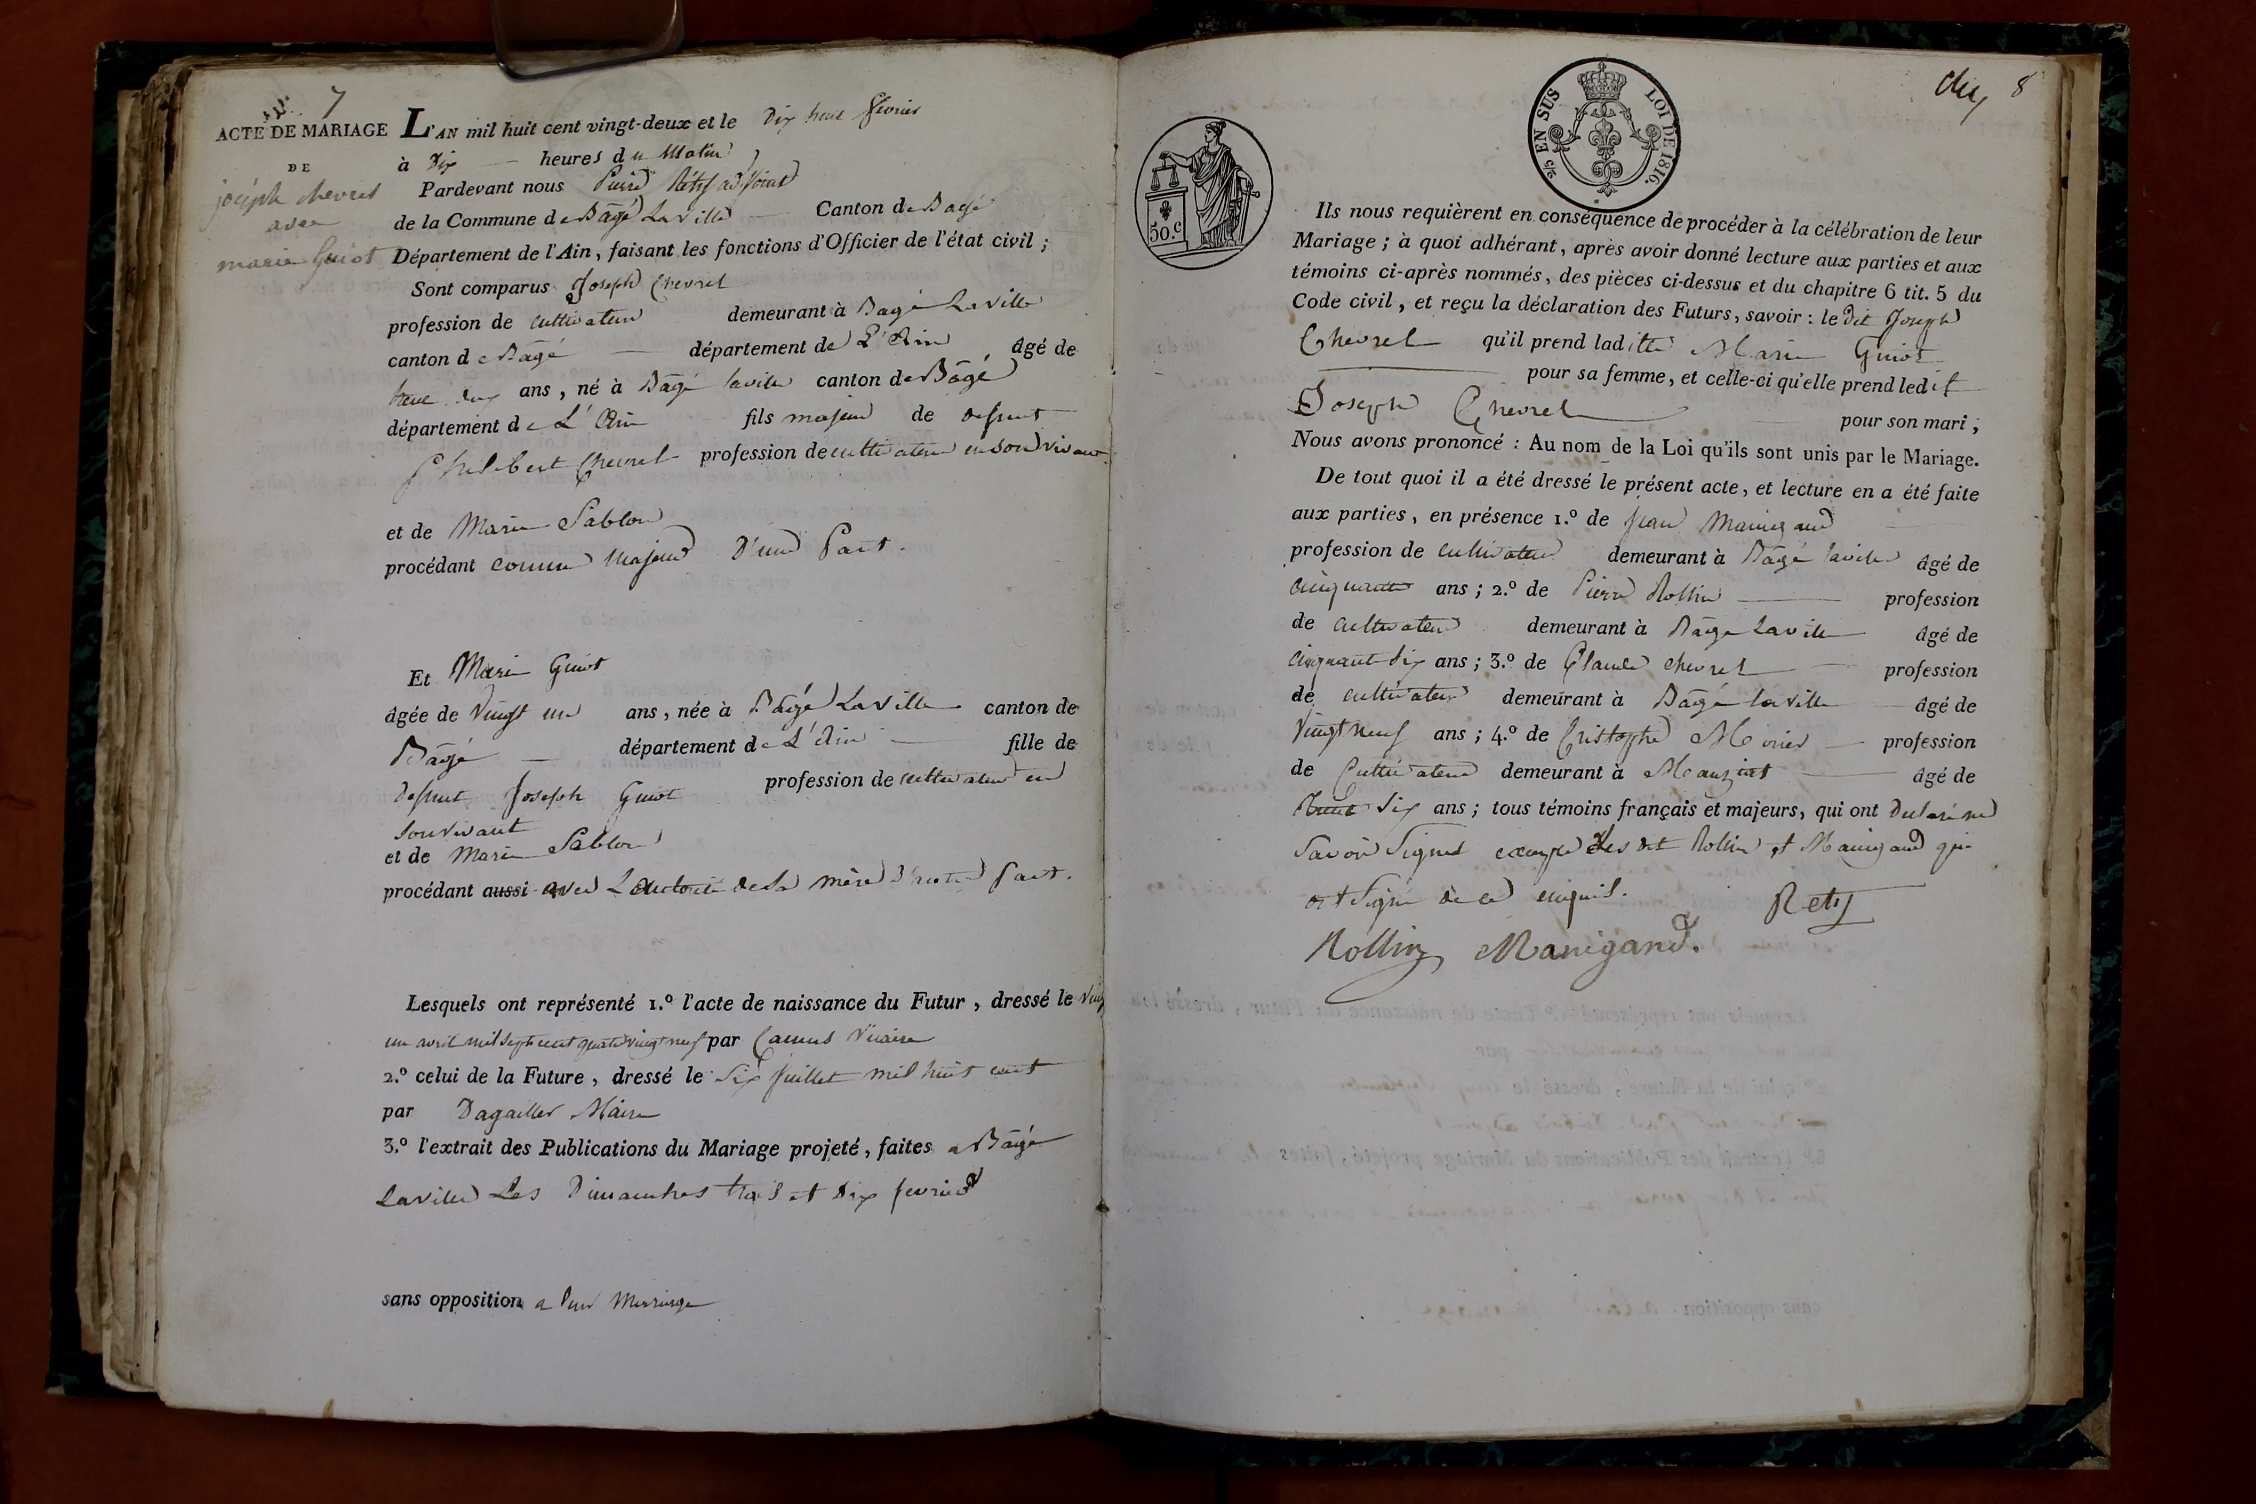 7
ACTE DE MARIAGE
DE
joseph chevret
avec
marie Guiot
L'AN mil huit cent vingt-deux et le Dix huit fevrier
à Dix heures du Matin
Pardevant nous Pierre Rétif adjoint
de la Commune de Bâgé La Ville Canton de Bâgé
Département de l'Ain, faisant les fonctions d'Officier de l'état civil ;
Sont comparus Joseph Chevret
profession de cultivateur demeurant à Bagé La ville
canton de Bâgé département de L'Ain âgé de
trente deux ans, né à Bâgé laville canton de Bâgé
département de L'Ain fils majeur de defunt
Philibert Chevret profession de cultivateur en son vivant
et de Marie Sablon
procédant comme Majeur D'une Part.
Et Marie Guiot
âgée de Vingt un ans, née à Bâgé La Ville canton de
Bâgé département de L'Ain fille de
defunt Joseph Guiot profession de cultivateur en
son vivant
et de Marie Sablon
procédant aussi avec L'autorité de sa mère D'autre Part.
Lesquels ont représenté 1.º l'acte de naissance du Futur, dressé le Vingt
un avril mil sept cent quatre vingt neuf par Camus Vicaire
2.º celui de la Future, dressé le Six Juillet mil huit cent
par Dagallier Maire
3.º l'extrait des Publications du Mariage projeté, faites a Bâgé
Laville Les Dimanches trois et Dix fevrier
sans opposition a leur Marriage
8
EN SUS LOI DE 1816.
50.c
Ils nous requièrent en conséquence de procéder à la célébration de leur
Mariage ; à quoi adhérant, après avoir donné lecture aux parties et aux
témoins ci-après nommés, des pièces ci-dessus et du chapitre 6 tit. 5 du
Code civil, et reçu la déclaration des Futurs, savoir : le dit Joseph
Chevret qu'il prend laditte Marie Guiot
pour sa femme, et celle-ci qu'elle prend ledit
Joseph Chevret pour son mari ;
Nous avons prononcé : Au nom de la Loi qu'ils sont unis par le Mariage.
De tout quoi il a été dressé le présent acte, et lecture en a été faite
aux parties, en présence 1.º de Jean Manigand
profession de cultivateur demeurant à Bâgé laville âgé de
cinquante ans ; 2.º de Pierre Rollin profession
de cultivateur demeurant à Bâgé Laville âgé de
cinquante Six ans ; 3.º de Claude chevret profession
de cultivateur demeurant à Bâgé laville âgé de
Vingt neuf ans ; 4.º de Cristophe Morier profession
de Cultivateur demeurant à Manziat âgé de
trente Six ans ; tous témoins français et majeurs, qui ont Declaré ne
Savoir Signer excepté les dit Rollin et Manigand qui
ont Signé de ce enquis.
Rollin Manigand.